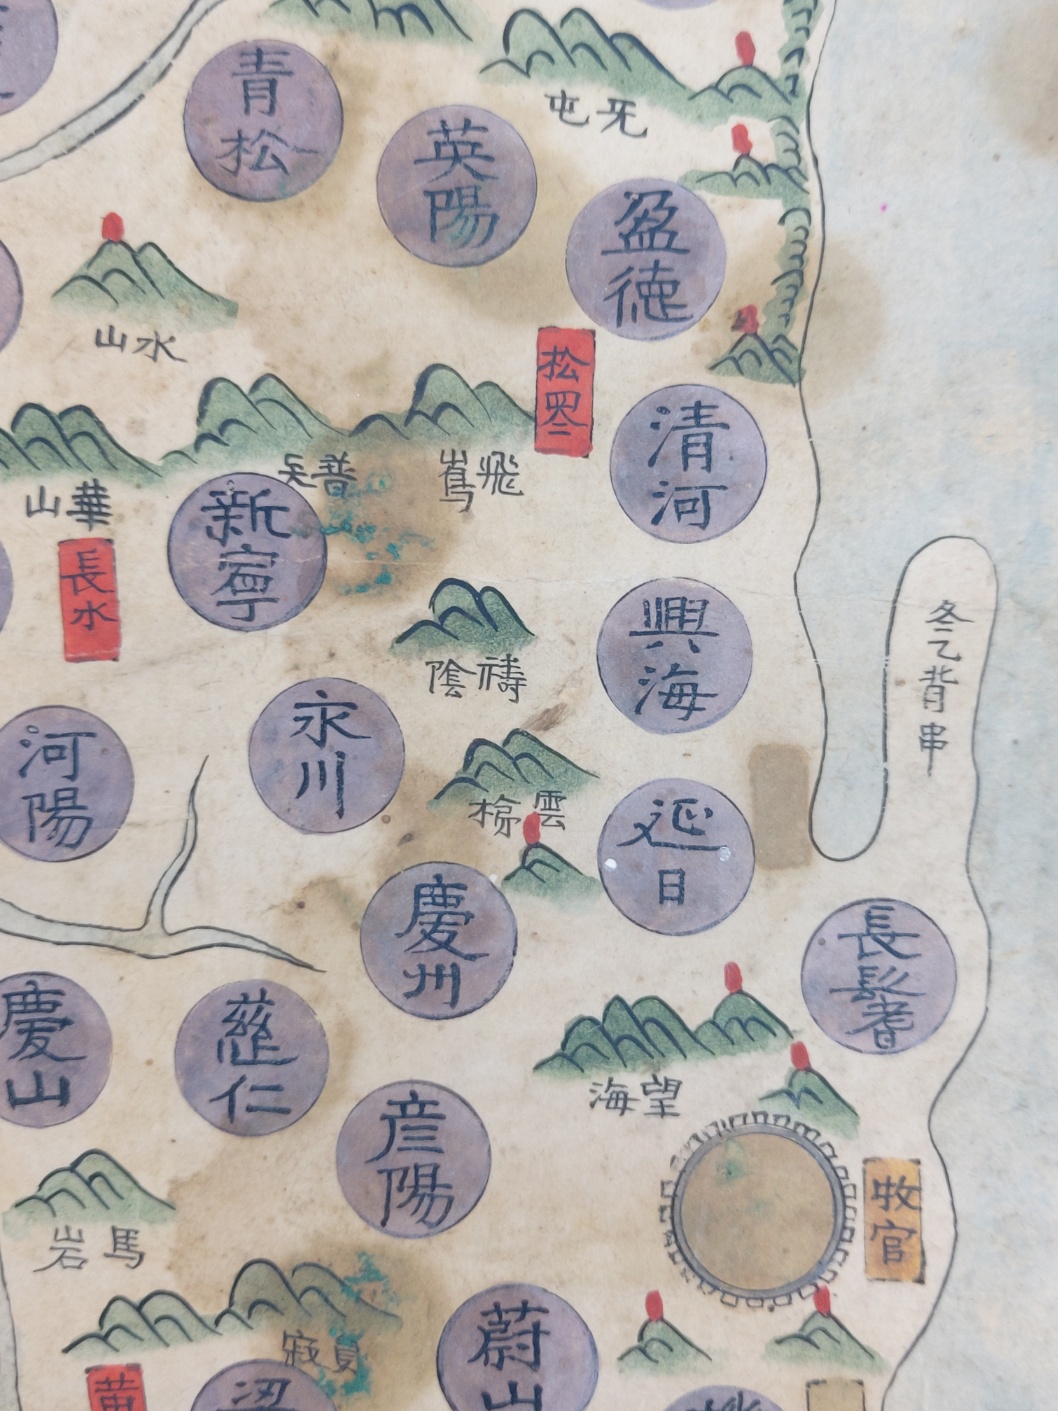 青松
英陽
盈德
屯牙
山水
松羅
清河
普賢
飛鳳
華山
長水
新寧
興海
冬乙背串
陰禱
永川
河陽
延日
雲梯
慶州
長鬐
慶山
慈仁
望海
彦陽
牧官
馬岩
蔚山